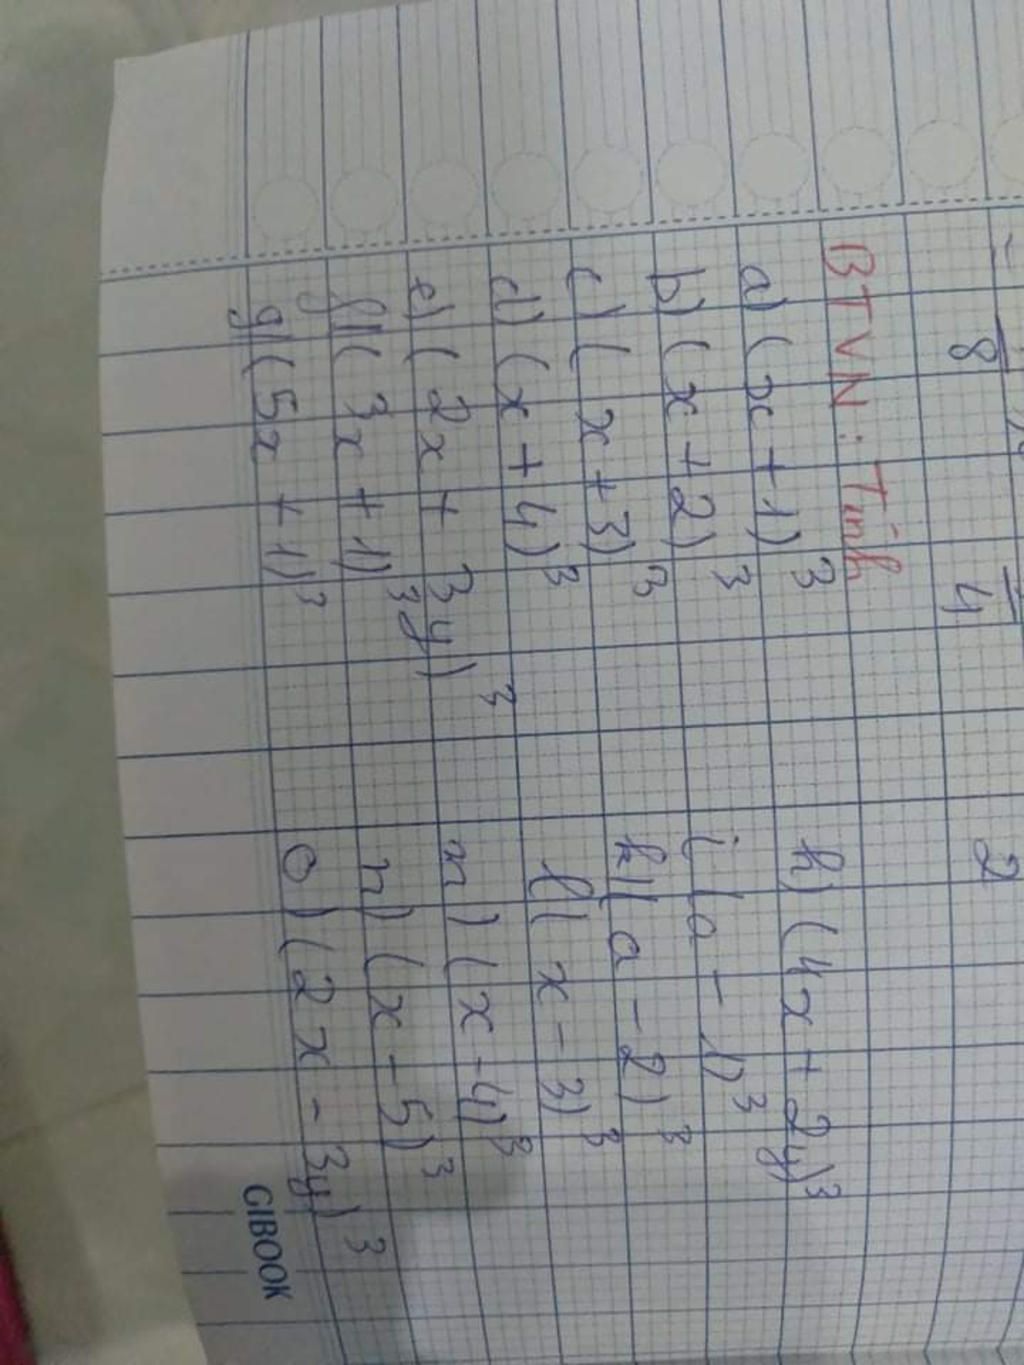 = 8 4 2
BTVN: Tính
a) (x + 1)³
b) (x + 2)³
c) (x + 3)³
d) (x + 4)³
e) (2x + 3y)³
f) (3x + 1)³
g) (5x + 1)³
h) (4x + 2y)³
i (a - 1)³
k) (a - 2)³
l (x - 3)³
m) (x - 4)³
n) (x - 5)³
o) (2x - 3y)³
GIBOOK